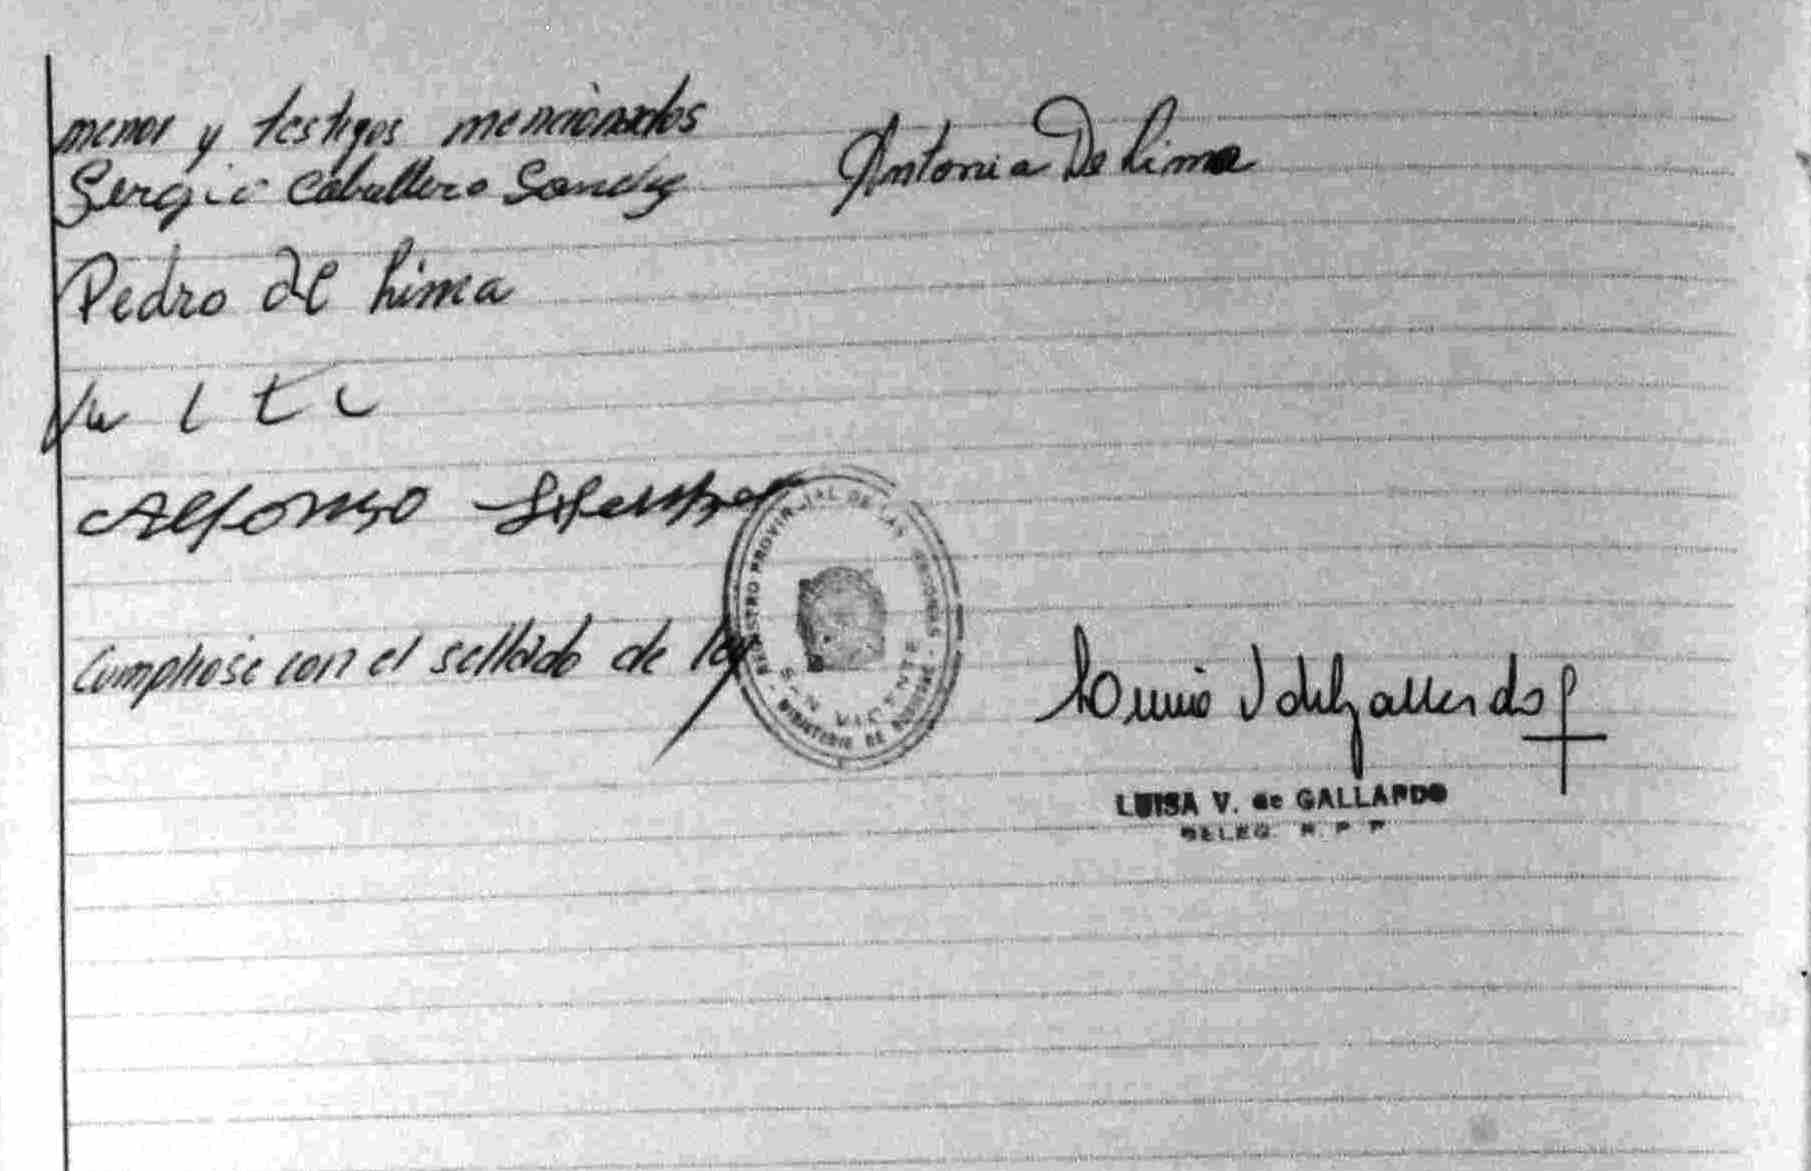 menor y testigos mencionados
Sergio Caballero Sanchez
Antonia De Lima
Pedro de Lima
Alfonso
Cumpliose con el sellado de ley
REGISTRO PROVINCIAL DE LAS PERSONAS
SAN VICENTE
MINISTERIO DE
Luisa V de Gallardo
LUISA V. de GALLARDO
DELEG. R. P. P